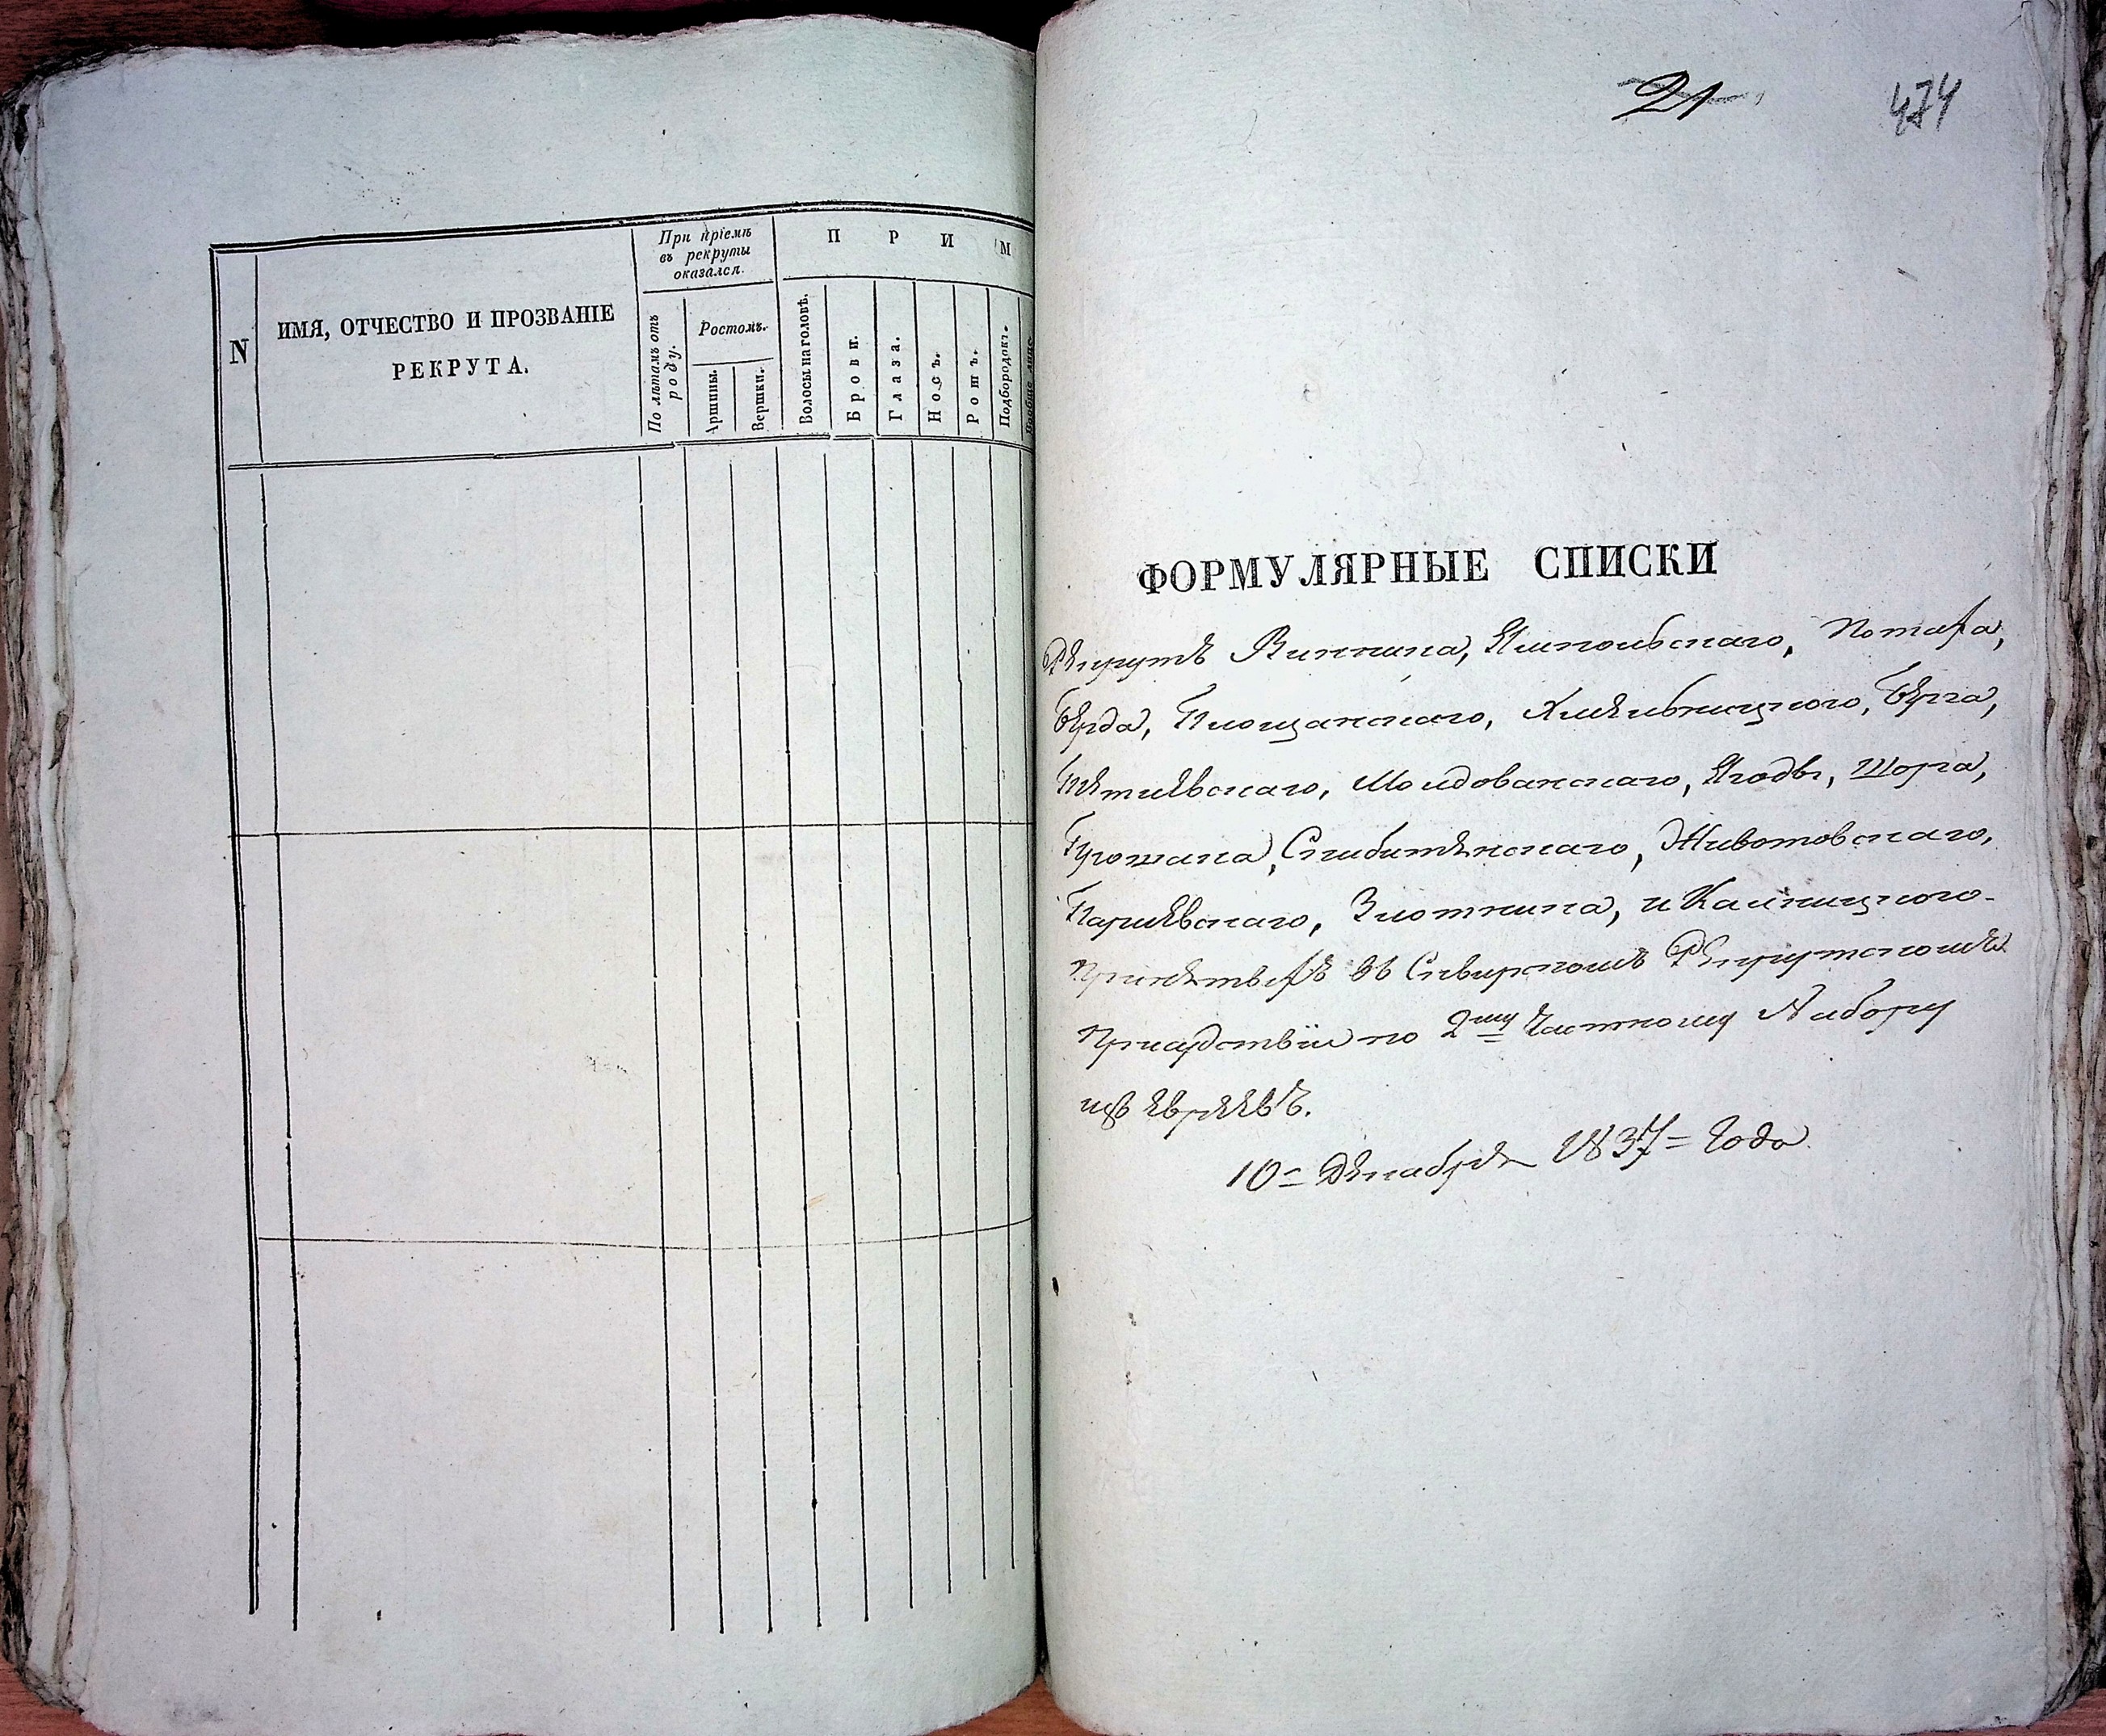 N
ИМЯ, ОТЧЕСТВО И ПРОЗВАНІЕ
РЕКРУТА.
При пріемѣ
въ рекруты
оказался.
По лѣтамъ отъ
роду.
Ростомъ.
Аршины.
Вершки.
П Р И М
Волосы на головѣ.
Брови.
Глаза.
Носъ.
Ротъ.
Подбородокъ.
Вообще лице
21
474
ФОРМУЛЯРНЫЕ СПИСКИ
Рекрутъ Винника, Ямпольскаго,
Берда, Площанскаго, Хмельницкого, Берга,
Тетіевскаго, Молдованскаго, Ягоды, Шорга,
Животовскаго,
Паріевскаго, Злотника, и Кальницкого
Принятыхъ въ Сквирскомъ Рекрутскомъ
Присудствіи по 2му Частному Набору
изъ евреевъ.
10= Декабря 1837= Года